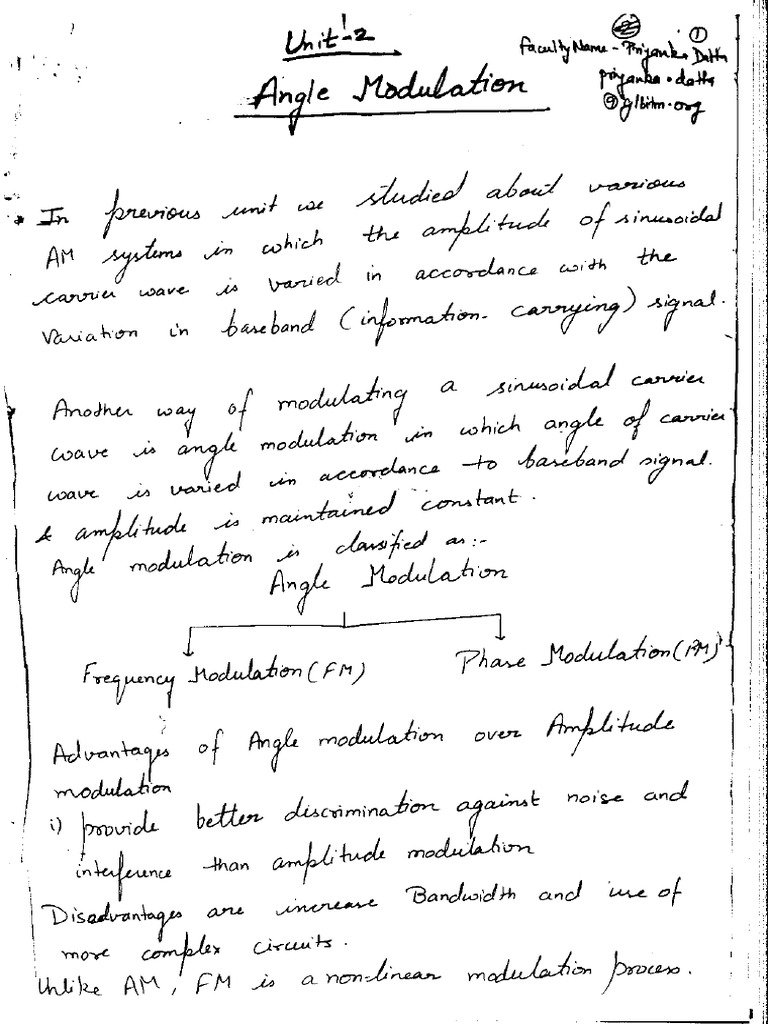 Unit-2
Angle Modulation
①
Faculty Name - Priyanka Datta
priyanka.datta
@glbitm.org
* In previous unit we studied about various
AM systems in which the amplitude of sinusoidal
carrier wave is varied in accordance with the
variation in baseband (information-carrying) signal.
Another way of modulating a sinusoidal carrier
wave is angle modulation in which angle of carrier
wave is varied in accordance to baseband signal.
& amplitude is maintained constant.
Angle modulation is classified as:-
Angle Modulation
Frequency Modulation (FM)
Phase Modulation (PM)
Advantages of Angle modulation over Amplitude
modulation
i) provide better discrimination against noise and
interference than amplitude modulation
Disadvantages are increase Bandwidth and use of
more complex circuits.
Unlike AM, FM is a non-linear modulation process.